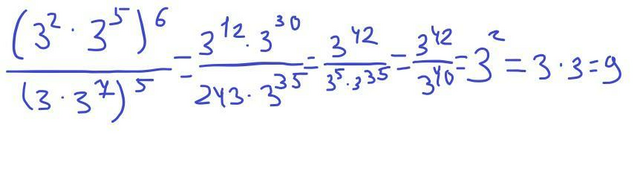 (3² · 3⁵)⁶ / (3 · 3⁷)⁵ = 3¹² · 3³⁰ / 243 · 3³⁵ = 3⁴² / 3⁵ · 3³⁵ = 3⁴² / 3⁴⁰ = 3² = 3 · 3 = 9